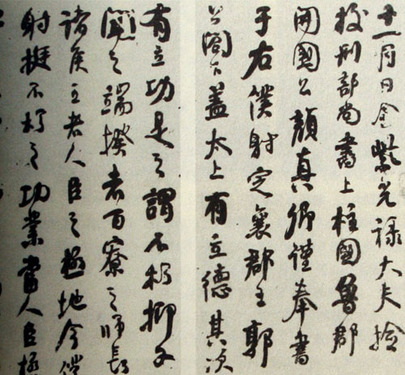 十一月日金紫光祿大夫檢
校刑部尚書上柱國魯郡
開國公顏真卿謹奉書
于右僕射定襄郡王郭
公閤下蓋太上有立德其次
有立功是之謂不朽抑又
聞之端揆者百寮之師長
諸侯王者人臣之極地今僕
射挺不朽之功業當人臣極